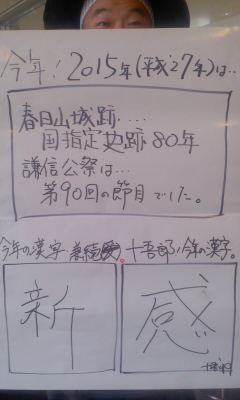 今年!2015年(平成27年)は…
春日山城跡....
国指定史跡80年
謙信公祭は…
第90回の節目でした。
今年の漢字 兼続 十吾郎 今年の漢字。
新
感
十吾郎